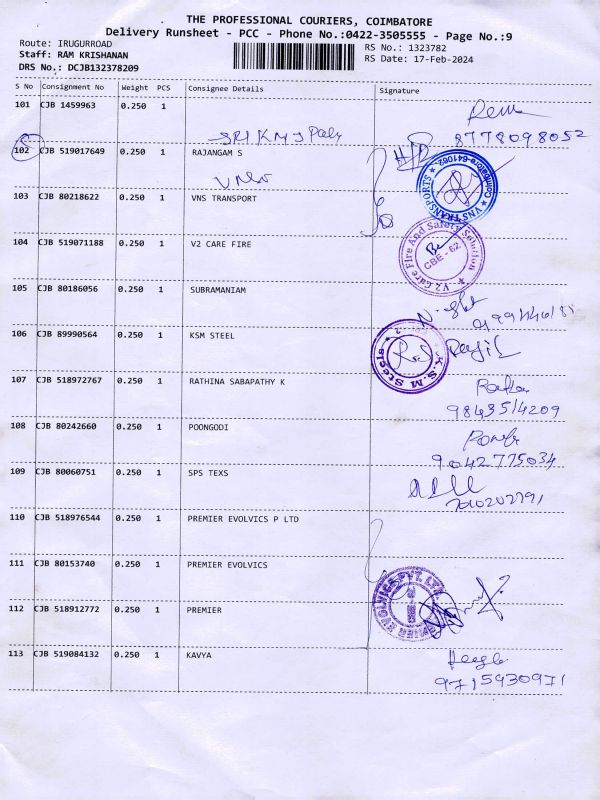 THE PROFESSIONAL COURIERS, COIMBATORE
Delivery Runsheet - PCC - Phone No.:0422-3505555 - Page No.:9
Route: IRUGURROAD
RS No.: 1323782
Staff: RAM KRISHANAN
RS Date: 17-Feb-2024
DRS No.: DCJB132378209
S No Consignment No Weight PCS Consignee Details Signature
101 CJB 1459963 0.250 1
8778098052
SRI KMJ
102 CJB 519017649 0.250 1 RAJANGAM S
103 CJB 80218622 0.250 1 VNS TRANSPORT
VNS TRANSPORTS ★ Coimbatore-641062 ★
104 CJB 519071188 0.250 1 V2 CARE FIRE
V2 Care Fire And Safety Solution ★
CBE-62
105 CJB 80186056 0.250 1 SUBRAMANIAM
106 CJB 89990564 0.250 1 KSM STEEL
K.S.M Steels
107 CJB 518972767 0.250 1 RATHINA SABAPATHY K
9843514209
108 CJB 80242660 0.250 1 POONGODI
9042775034
109 CJB 80060751 0.250 1 SPS TEXS
110 CJB 518976544 0.250 1 PREMIER EVOLVICS P LTD
111 CJB 80153740 0.250 1 PREMIER EVOLVICS
PREMIER EVOLVICS PVT. LTD.
112 CJB 518912772 0.250 1 PREMIER
113 CJB 519084132 0.250 1 KAVYA
9715930971